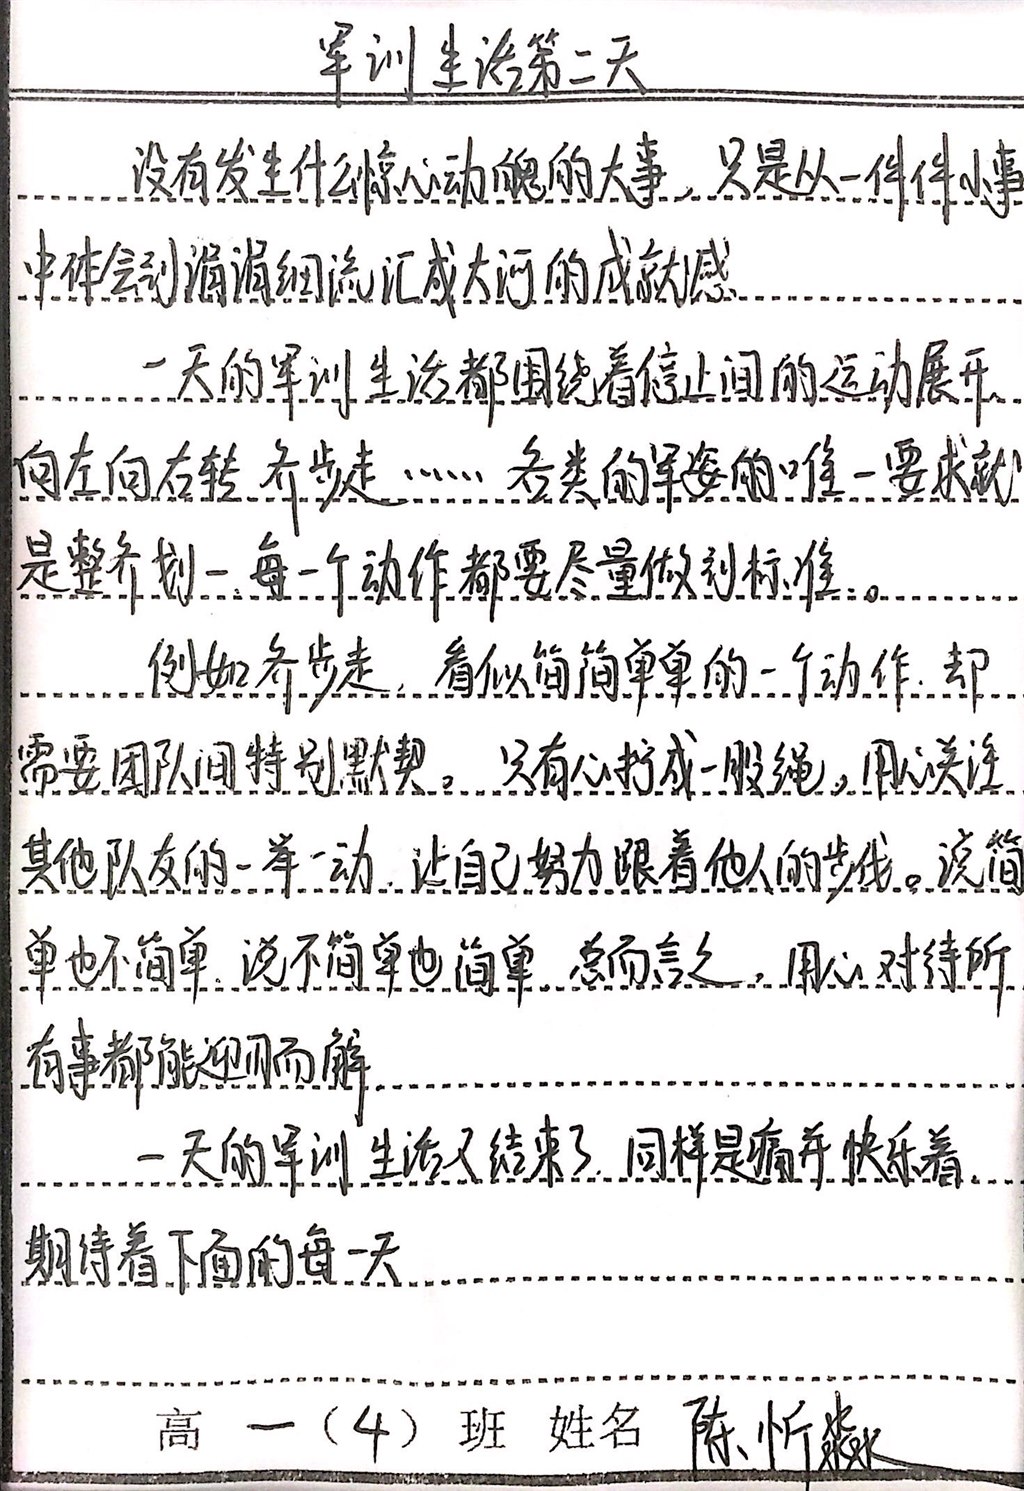 军训生活第二天
没有发生什么惊心动魄的大事，只是从一件件小事
中体会到涓涓细流汇成大河的成就感.
一天的军训生活都围绕着停止间的运动展开.
向左向右转 齐步走……各类的军姿的唯一要求就
是整齐划一.每一个动作都要尽量做到标准.。
例如齐步走，看似简简单单的一个动作.却
需要团队间特别默契。只有心拧成一股绳，用心关注
其他队友的一举一动.让自己努力跟着他人的步伐。说简
单也不简单.说不简单也简单.总而言之，用心对待所
有事都能迎刃而解.
一天的军训生活又结束了.同样是痛并快乐着.
期待着下面的每一天
高一（4）班 姓名 陈忻淼